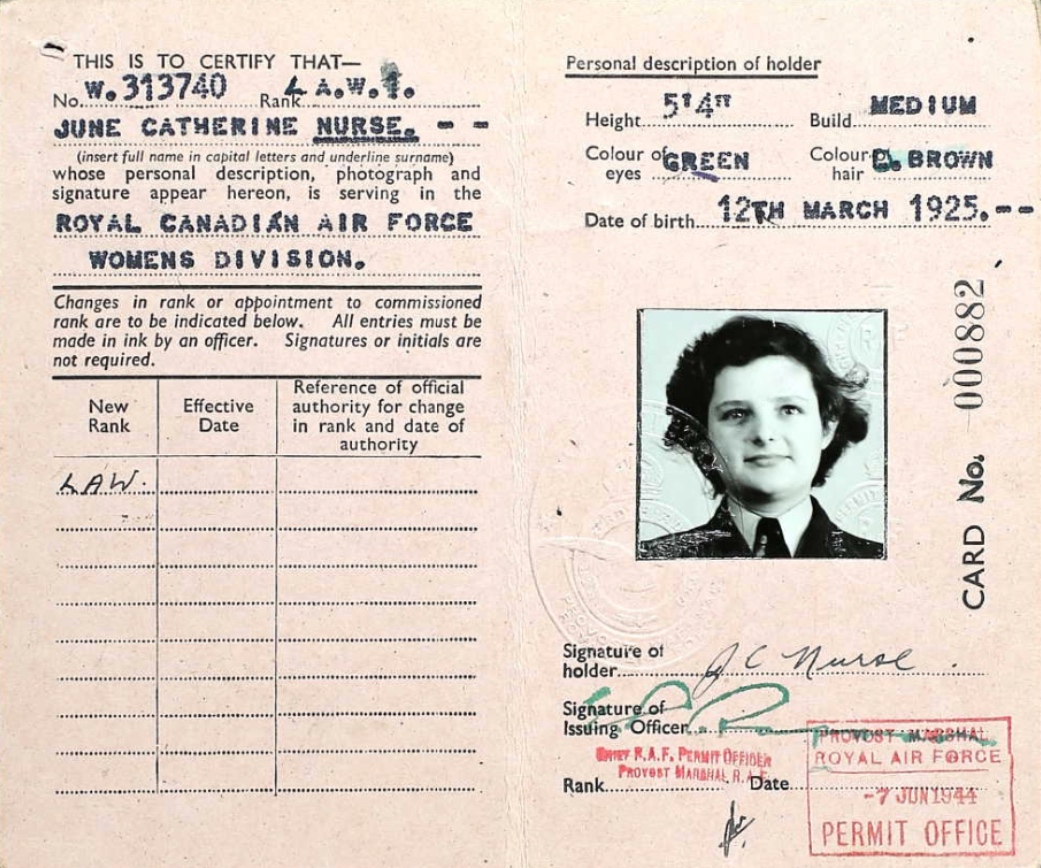 THIS IS TO CERTIFY THAT—
No. W.313740 Rank L A.W.1.
JUNE CATHERINE NURSE. - -
(insert full name in capital letters and underline surname)
whose personal description, photograph and
signature appear hereon, is serving in the
ROYAL CANADIAN AIR FORCE
WOMENS DIVISION.
Changes in rank or appointment to commissioned
rank are to be indicated below. All entries must be
made in ink by an officer. Signatures or initials are
not required.
New Rank
Effective Date
Reference of official authority for change in rank and date of authority
LAW.
Personal description of holder
Height 5'4" Build MEDIUM
Colour of eyes GREEN Colour hair D. BROWN
Date of birth 12TH MARCH 1925.--
CARD No. 000882
Signature of holder J C Nurse .
Signature of
Issuing Officer
CHIEF R.A.F. PERMIT OFFICER
PROVOST MARSHAL R.A.F.
Rank Date
PROVOST MARSHAL
ROYAL AIR FORCE
-7 JUN 1944
PERMIT OFFICE